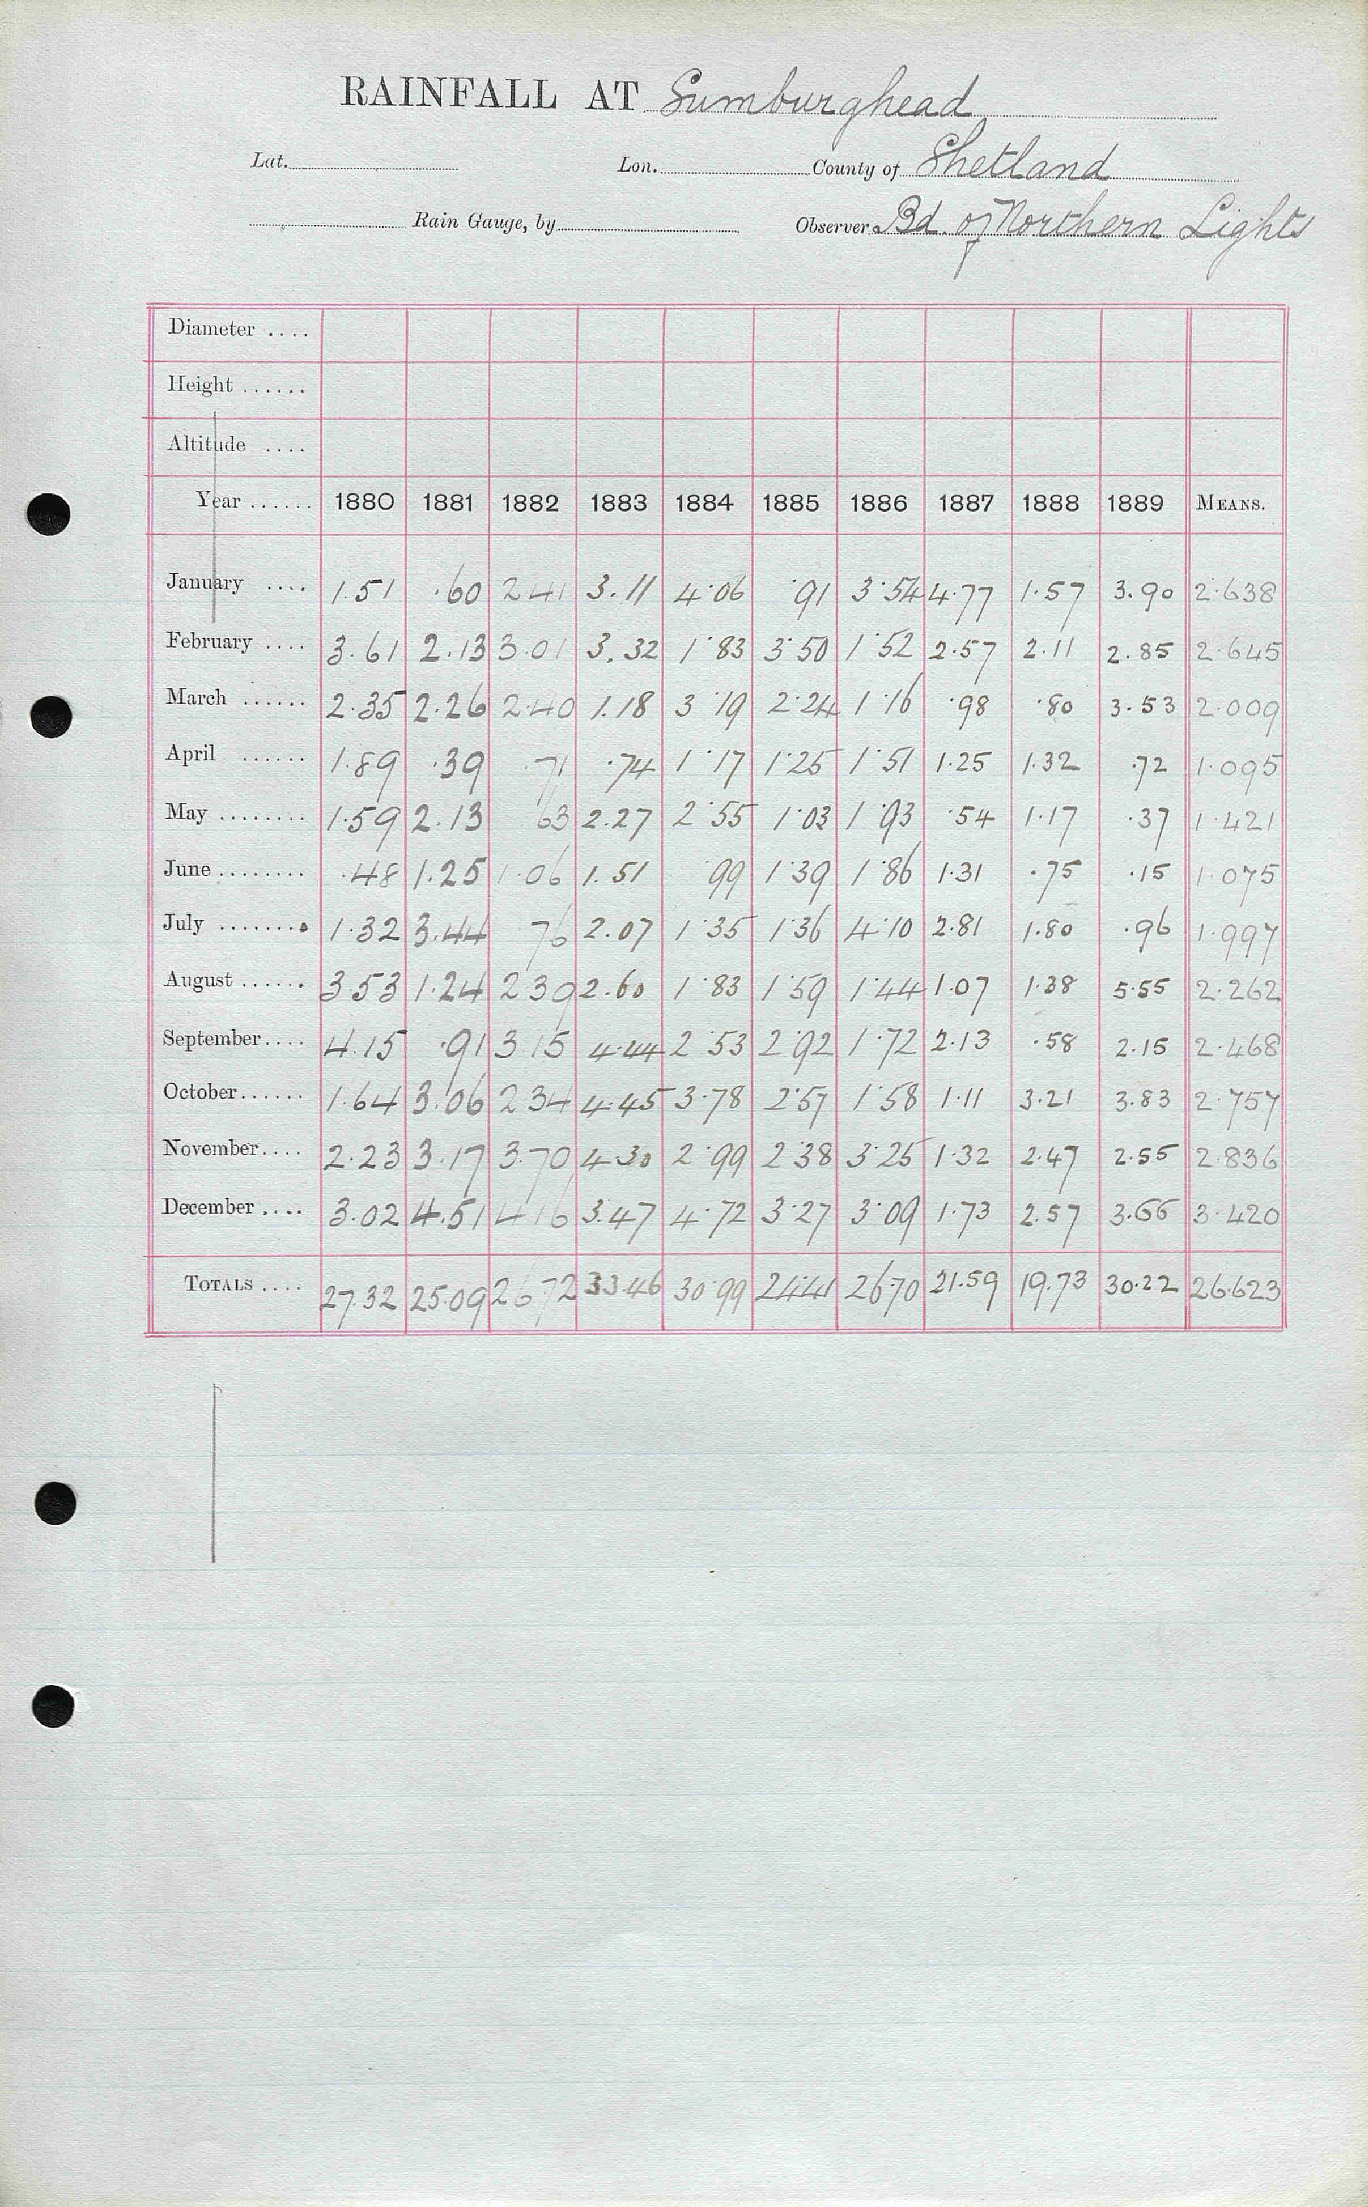 RAINFALL AT Sumburghead
Lat. Lon. County of Shetland
Rain Gauge, by Observer Bd. of Northern Lights
Diameter ....
Height ......
Altitude ....
Year ...... 1880 1881 1882 1883 1884 1885 1886 1887 1888 1889 MEANS.
January .... 1.51 .60 2 41 3.11 4.06 .91 3.54 4.77 1.57 3.90 2.638
February .... 3.61 2.13 3.01 3.32 1.83 3.50 1.52 2.57 2.11 2.85 2.645
March ...... 2.35 2.26 2.40 1.18 3.19 2.24 1.16 .98 .80 3.53 2.009
April ...... 1.89 .39 .71 .74 1.17 1.25 1.51 1.25 1.32 .72 1.095
May ........ 1.59 2.13 63 2.27 2.55 1.03 1.93 .54 1.17 .37 1.421
June ........ .48 1.25 1.06 1.51 99 1.39 1.86 1.31 .75 .15 1.075
July ........ 1.32 3.44 76 2.07 1.35 1.36 4.10 2.81 1.80 .96 1.997
August ...... 3 53 1.24 2 39 2.60 1.83 1.59 1.44 1.07 1.38 5.55 2.262
September .... 4.15 .91 3 15 4.44 2.53 2.92 1.72 2.13 .58 2.15 2.468
October ...... 1.64 3.06 2 34 4.45 3.78 2.57 1.58 1.11 3.21 3.83 2.757
November .... 2.23 3.17 3.70 4.30 2.99 2.38 3.25 1.32 2.47 2.55 2.836
December .... 3.02 4.51 4 16 3.47 4.72 3.27 3.09 1.73 2.57 3.66 3.420
TOTALS .... 27.32 25.09 26 72 33.46 30.99 24.41 26.70 21.59 19.73 30.22 26.623